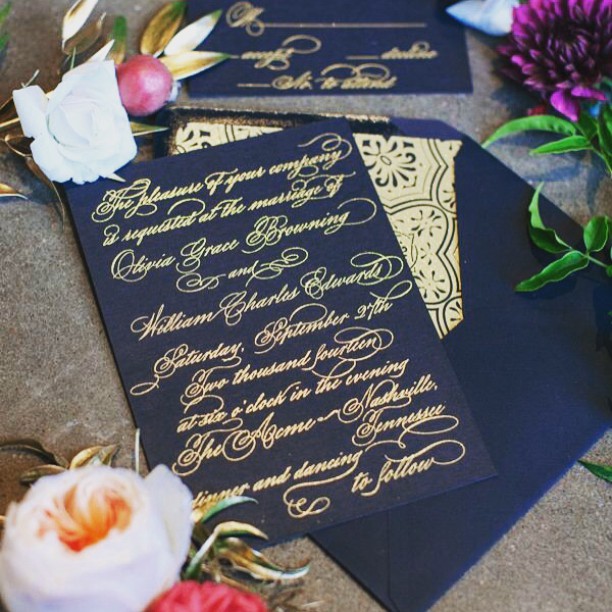 accept decline
No. to attend
The pleasure of your company
is requested at the marriage of
Olivia Grace Browning
and
William Charles Edwards
Saturday, September 27th
Two thousand fourteen
at six o'clock in the evening
The Acme ~ Nashville,
Tennessee
dinner and dancing
to follow